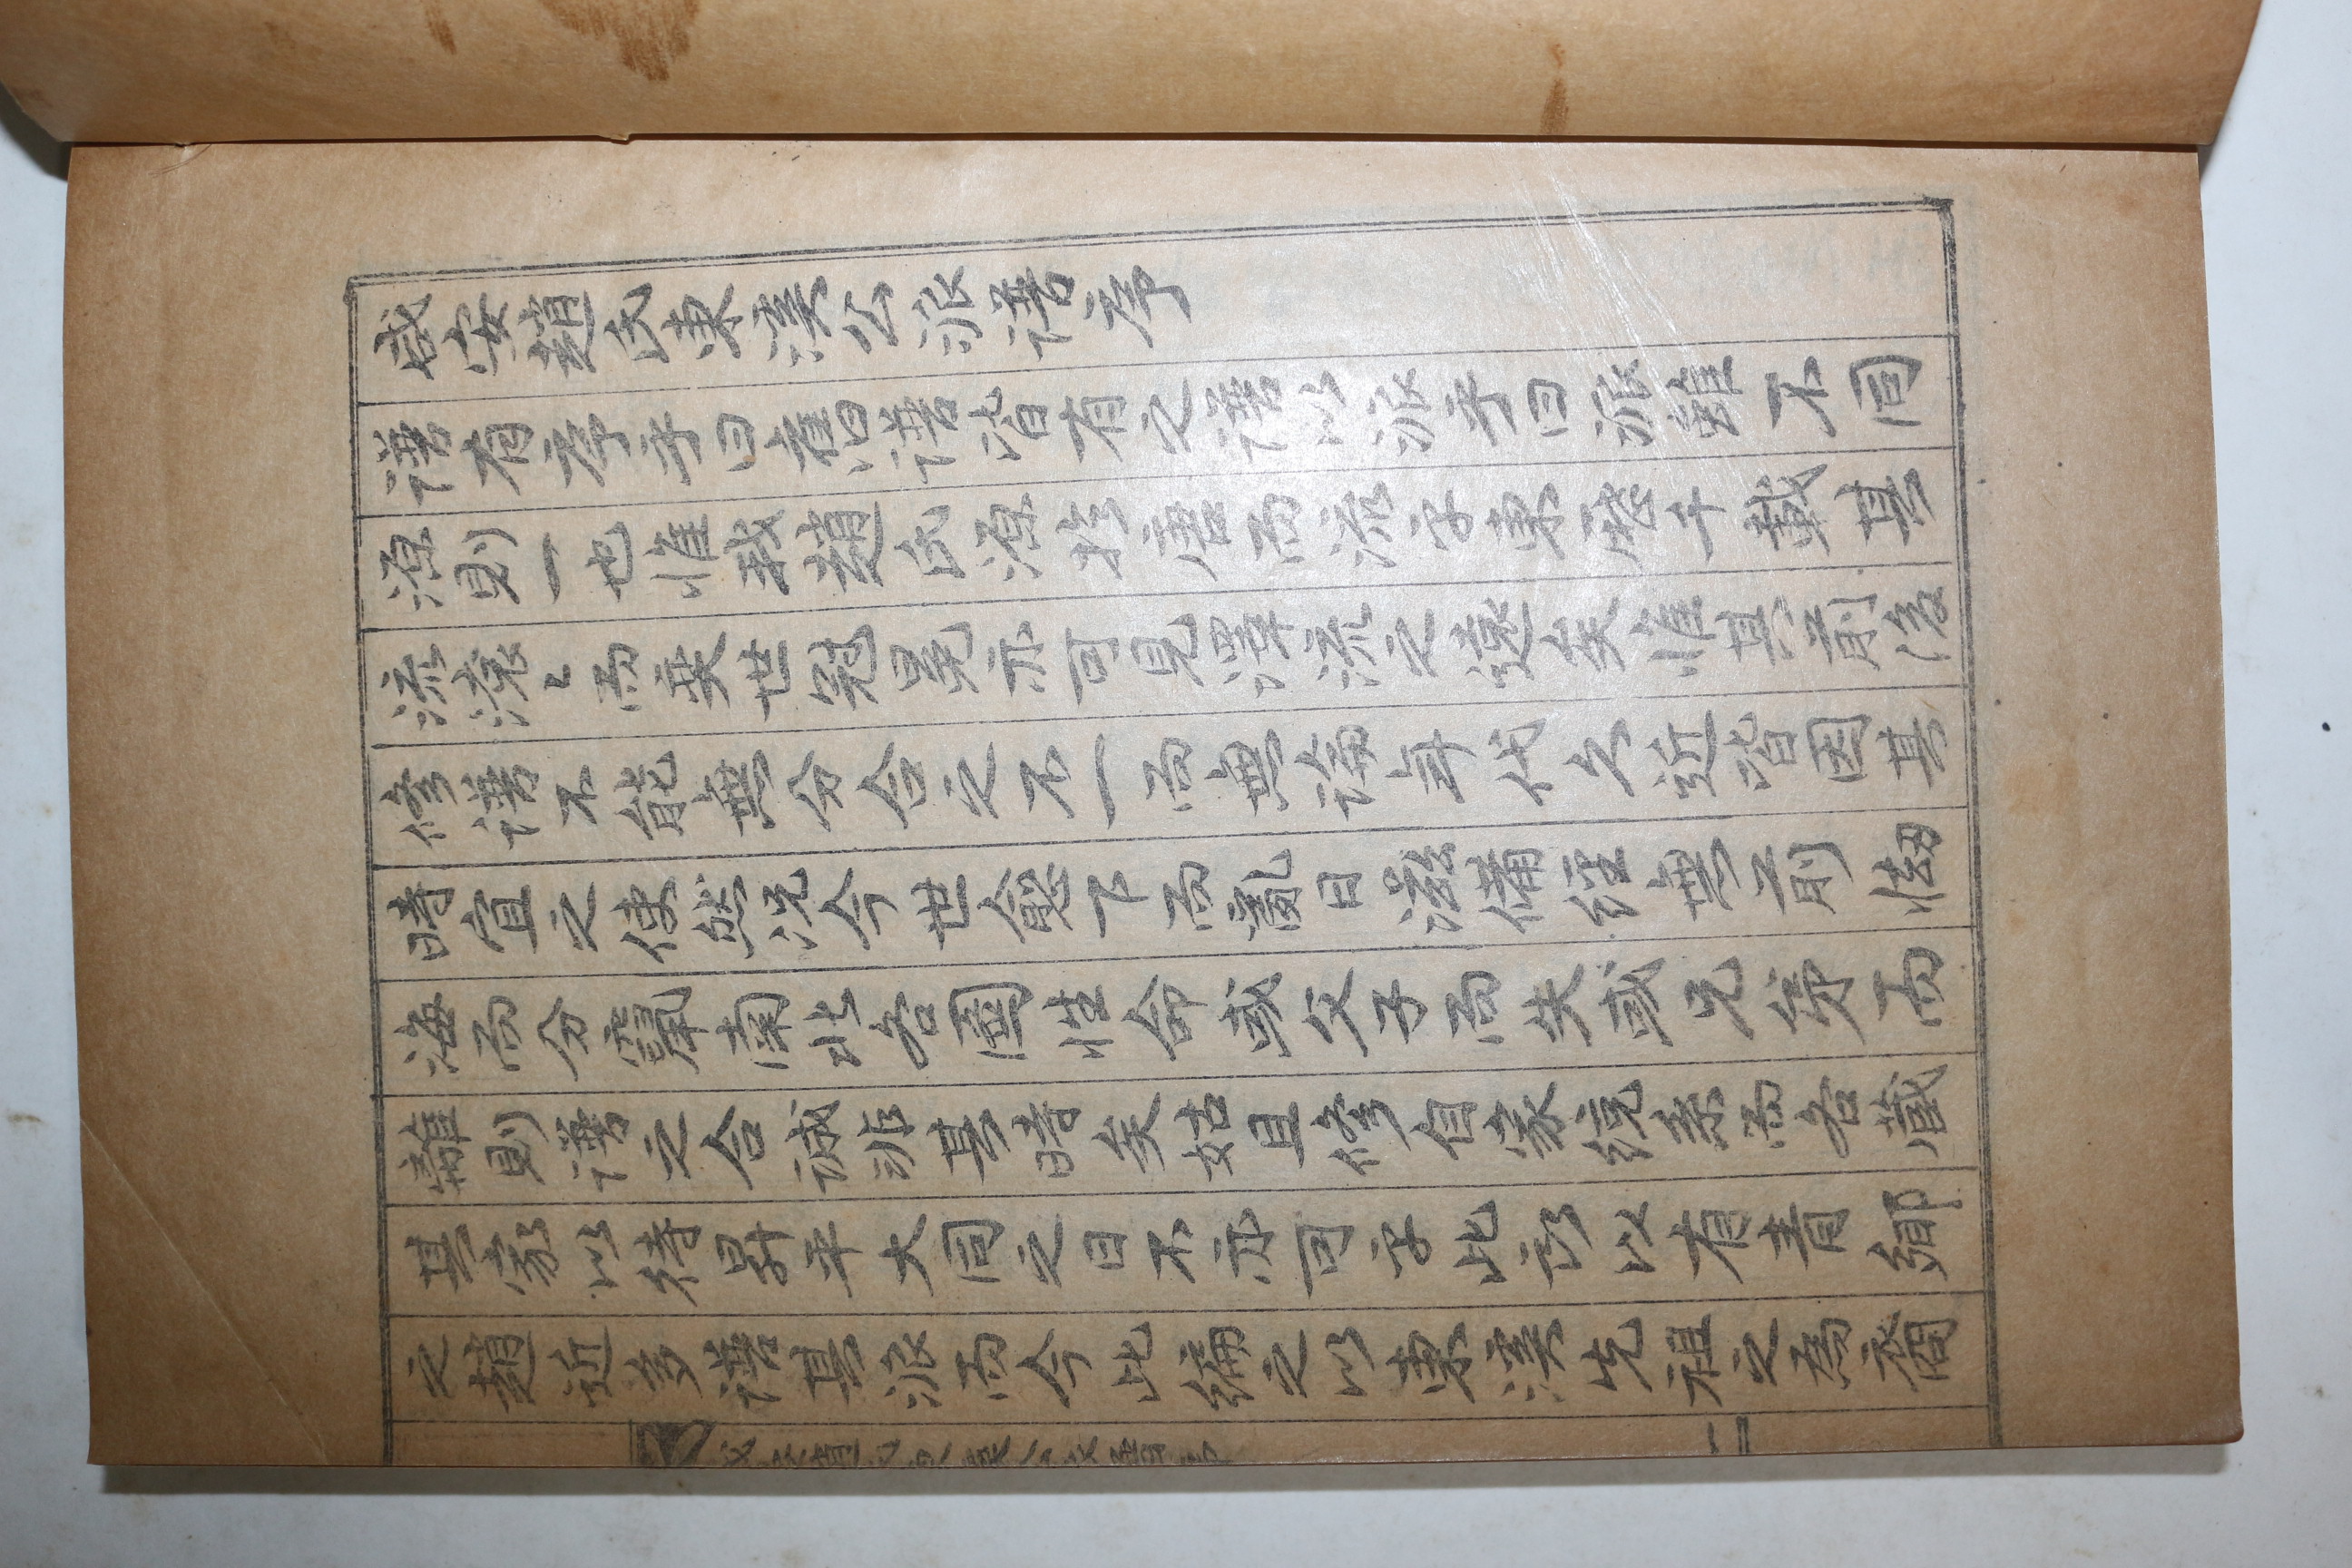 咸安趙氏東溪公派譜序
譜有序乎曰舊譜皆有之譜以派乎曰派雖不同
源則一也惟我趙氏源於唐而流乎東歷千載其
流滾〻而奕世冠冕亦可見澤流之遠矣惟其前後
修譜不能無分合之不一而無論年代久近皆因其
時宜之使然況今世愈下而亂日滋備經無前㤼
海而分竄南北各圖性命或父子而失或兄弟而
離則譜之合誠非其時矣姑且修自家統系而各藏
其家以待昇平大同之日不亦可乎此所以有青鄉
之趙近多譜其派而今此編之以東溪先祖之爲裔
二